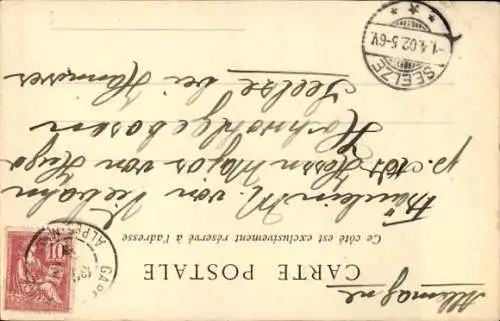 CARTE POSTALE
Ce côté est exclusivement réservé à l'adresse
Fräulein M. von Viebahn
p. adr. Herrn Major von Hugo
Hochwohlgeboren
Seelze bei Hannover
Allemagne
SEELZE
1.4.02.5-6V.
10
GARE
ALPES-M